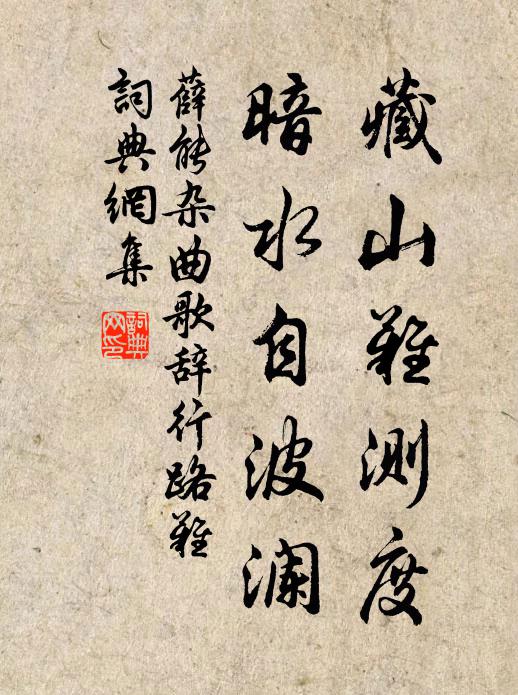 藏山难测度
暗水自波澜
薛能杂曲歌辞行路难
詞典網集
詞典网印